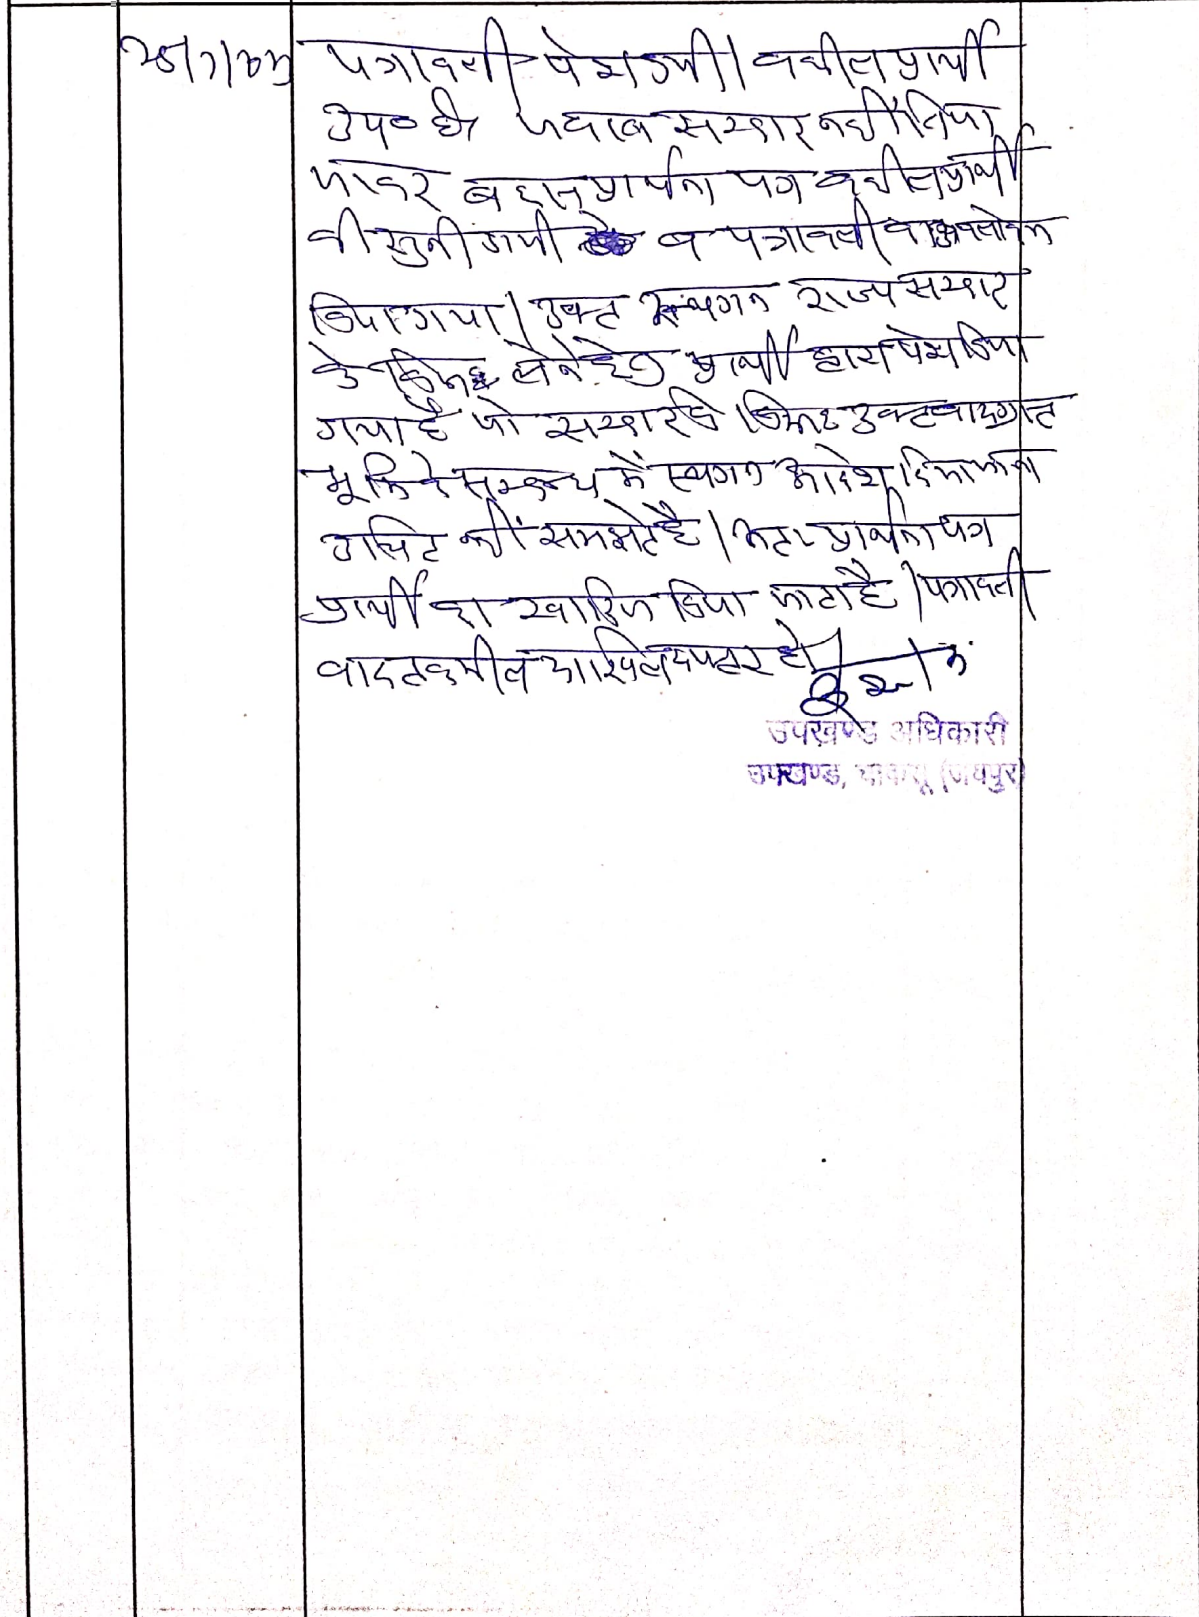 पत्रावली पेश हुयी। वकील प्रार्थी
उप० है। जवाब सरकार नहीं लिया
जाकर बहस प्रार्थना पत्र वकील प्रार्थी
की सुनी गयी व पत्रावली का अवलोकन
किया गया। उक्त स्थगन राज्य सरकार
के विरूद्ध लेने हेतु प्रार्थी द्वारा पेश किया
गया है जो सरकार के विरूद्ध उक्त वादग्रस्त
भूमि के सम्बन्ध में स्थगन आदेश दिया जाना
उचित नहीं समझते है। अतः प्रार्थना पत्र
प्रार्थी का खारिज किया जाता है। पत्रावली
बाद तकमील दाखिल दफ्तर हो।
उपखण्ड अधिकारी
उपखण्ड, चाकसू (जयपुर)